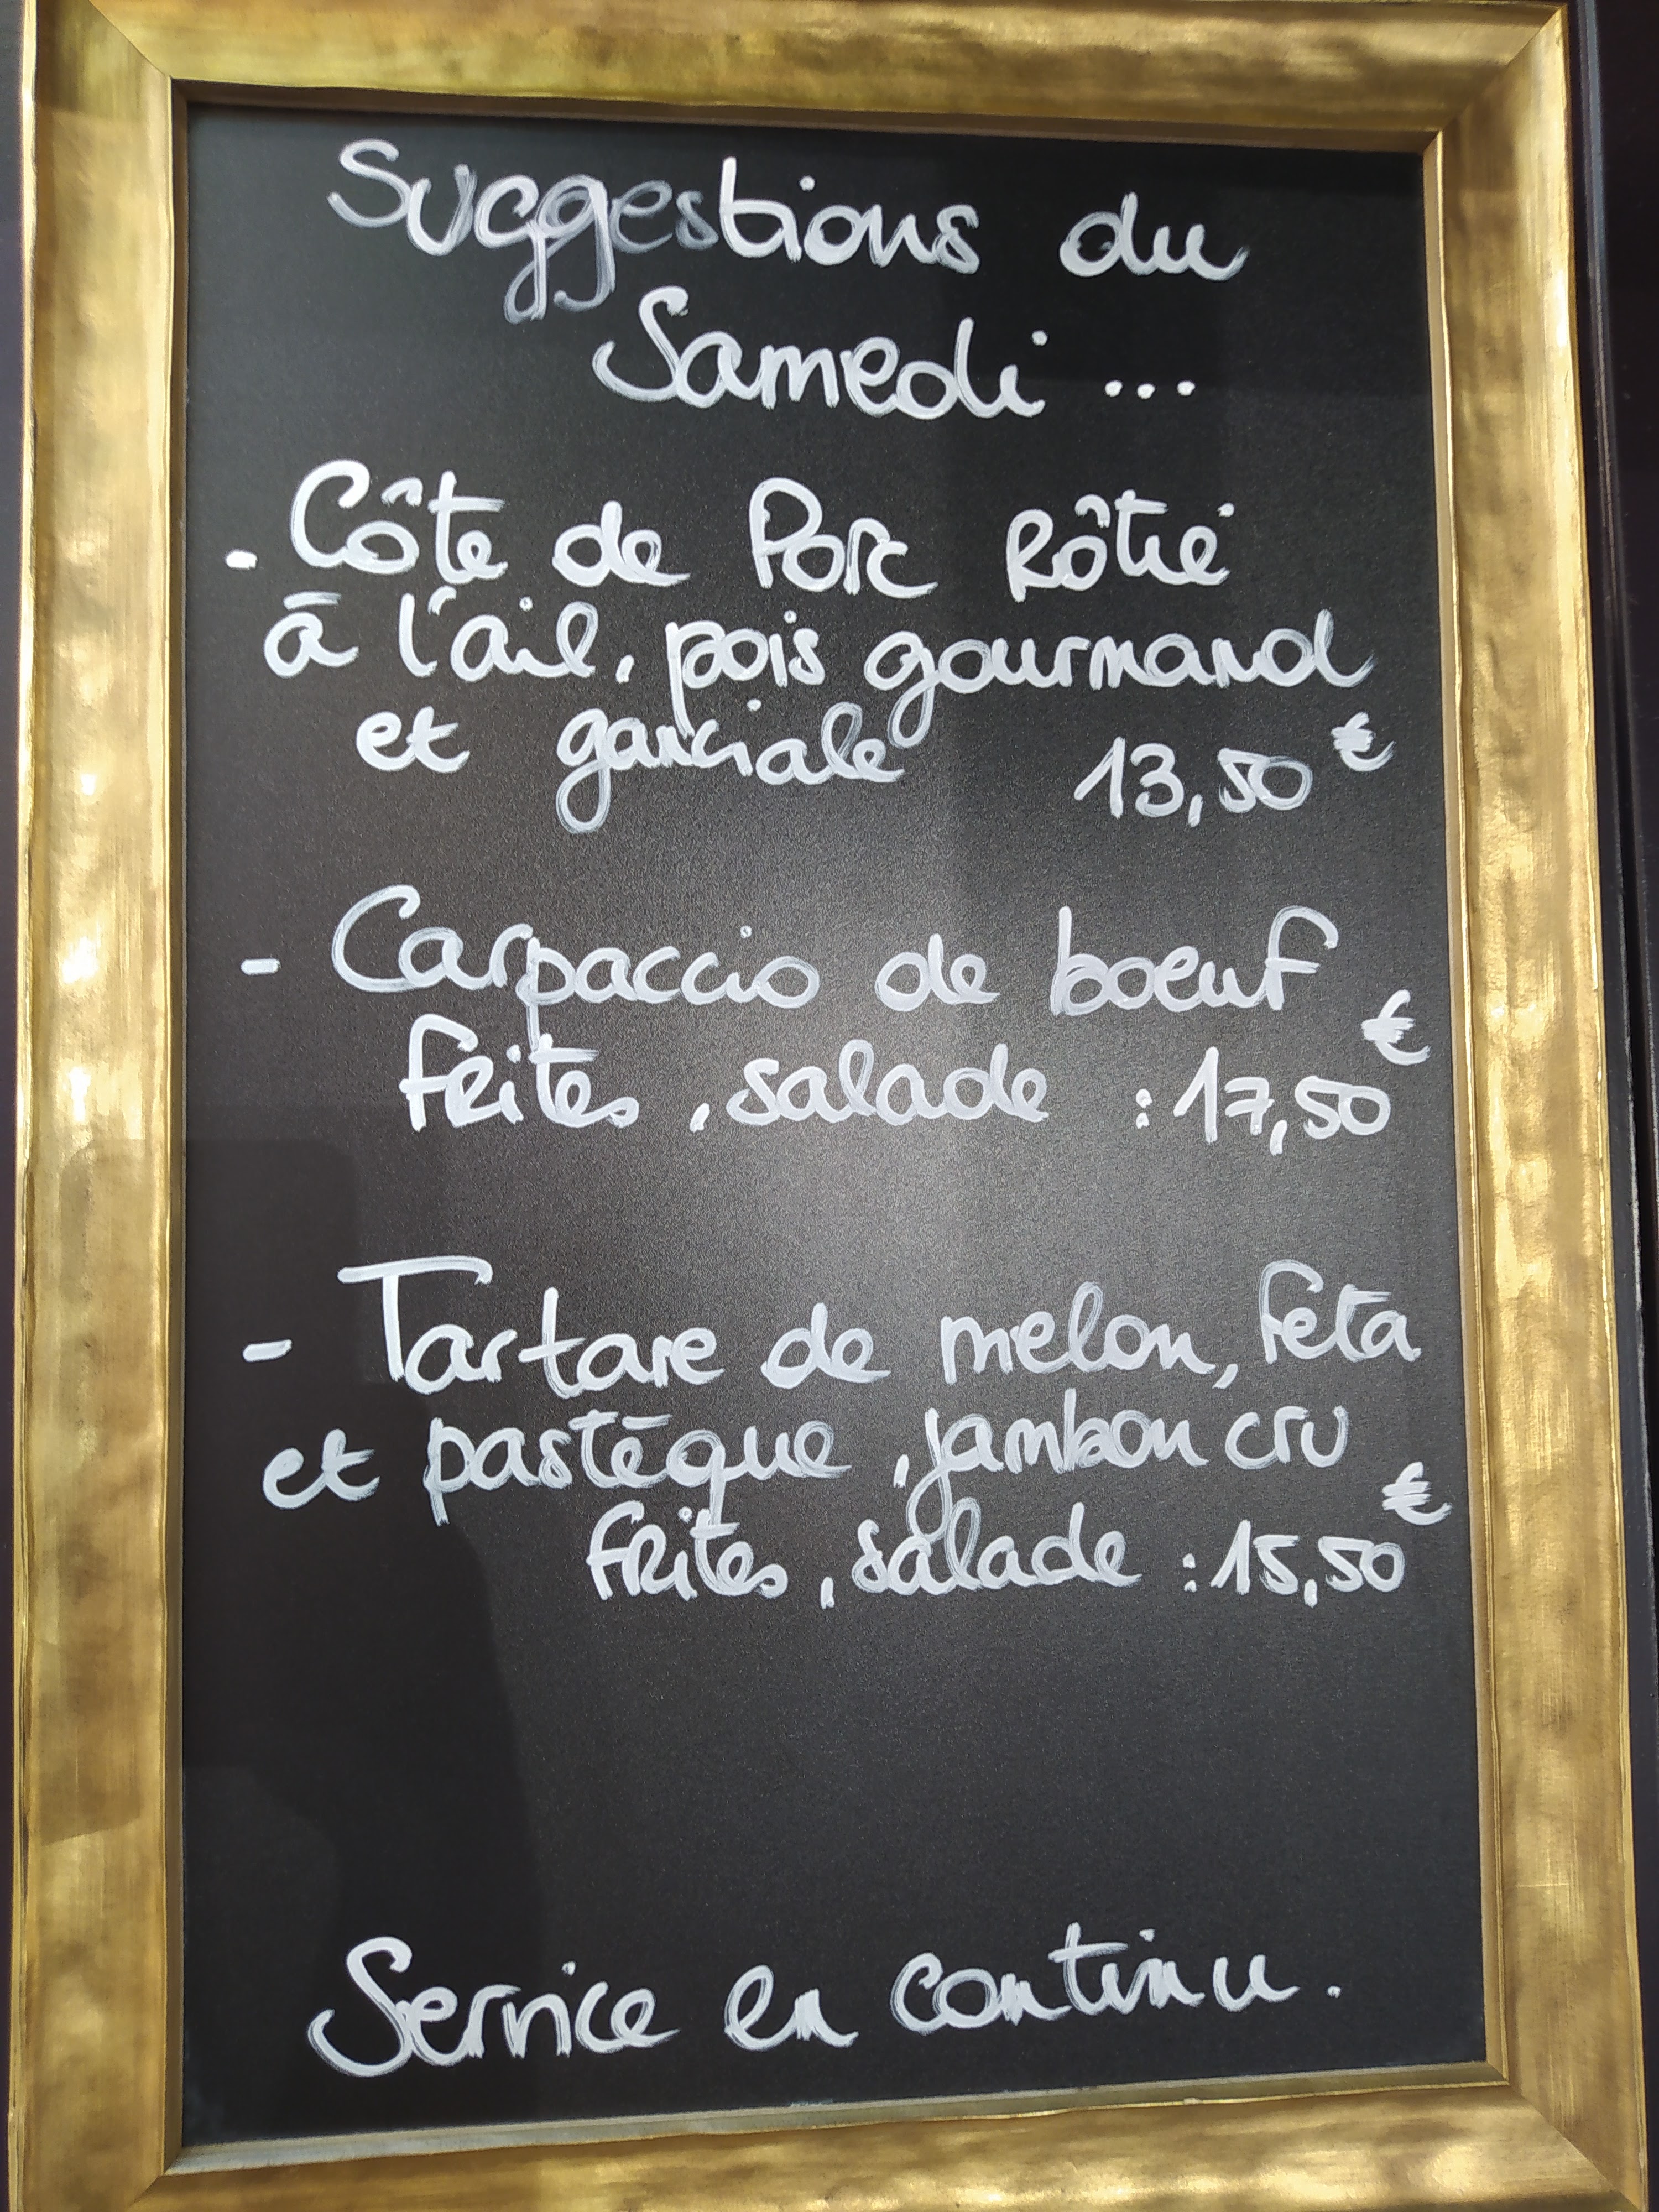 Suggestions du
Samedi ...
- Côte de Porc Rôtie
à l'ail, pois gourmand
et garciale 13,50€
- Carpaccio de boeuf
frites, salade : 17,50€
- Tartare de melon, feta
et pastèque, jambon cru
frites, salade : 15,50€
Service en continu.